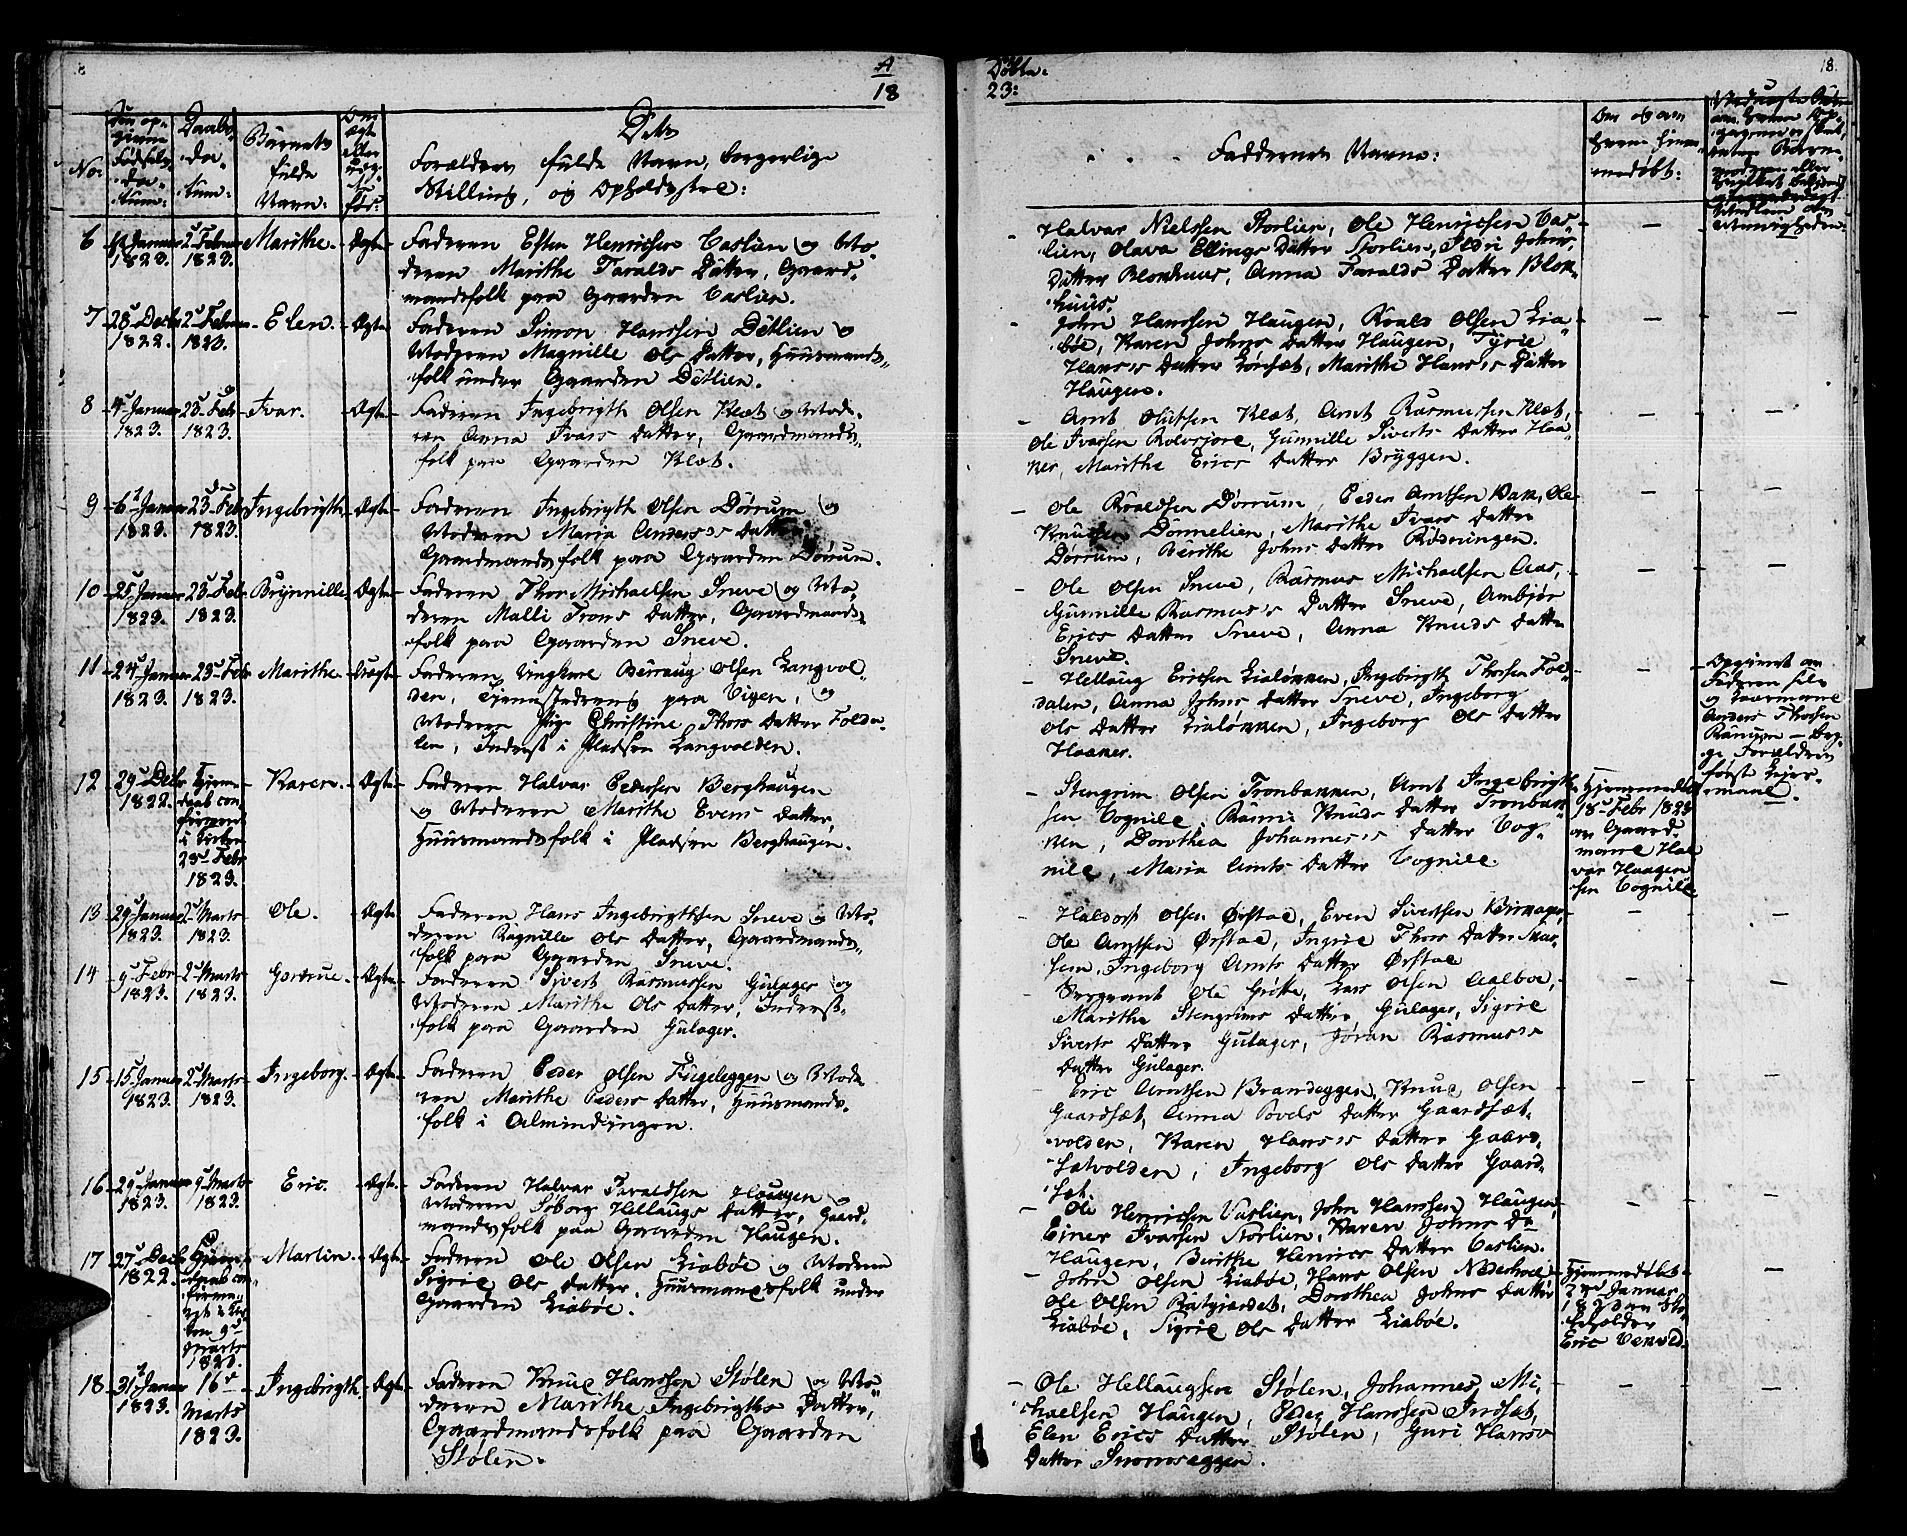 8
A
18
Døbte.
23:
18.
No:
Den op-
givne
Fødsels
da-
tum:
Daabs
da-
tum:
Barnets
fulde
Navn:
Om
Ægte
eller
uæg-
te
Før:
De
Forældres fulde Navn, borgerlige
Stilling, og Opholdsted:
Faddernes Navne:
Om og om
hvem hiem-
medøbt:
6
Januar
1823.
2 Februar
1823.
Marithe.
Ægte
Faderen Esten Henrichsen Vaslien og Mo-
deren Marithe Taralds Datter, Gaard-
mandsfolk paa Gaarden Vaslien.
Halvar Nielsen Storlien, Ole Henrichsen Vas-
lien, Olava Ellings Datter Storlien, Sidri Johns
Datter Blokhuus, Anna Taralds Datter Blok-
huus.
7
28 Decbr
1822.
2 Februar
1823.
Elen.
Ægte
Faderen Simon Hanssen Ditlien og
Moderen Magnille Ols Datter, Huusmands-
folk under Gaarden Ditlien.
John Hanssen Haugen, Roald Olsen Lia-
bøe, Karen Johns Datter Haugen, Tyrie
Hans's Datter Lønsæt, Marithe Hans's Datter
Haugen.
8
4 Januar
1823.
23 Febr
1823.
Ivar.
Ægte
Faderen Ingebrigth Olsen Klæt og Mode-
ren Anna Ivars Datter, Gaardmands-
folk paa Gaarden Klæt.
Arnt Olufsen Klæt, Arnt Rasmussen Klæt,
Ole Ivarsen Rolvsjord, Gunnille Siverts Datter Haa-
ker, Marithe Erics Datter Bryggen.
9
6 Januar
1823.
23 Febr
1823.
Ingebrigth.
Ægte
Faderen Ingebrigth Olsen Dørrum og
Moderen Maria Anders's Datter
Gaardmandsfolk paa Gaarden Dørrum.
Ole Roaldsen Dørrum, Peder Arntsen Bak, Ole
Knudsen Donnelien, Marithe Ivars Datter
Dørrum, Berithe Johns Datter Rødningen.
10
25 Januar
1823.
23 Febr
1823.
Brynnille.
Ægte
Faderen Thor Michaelsen Sneve og Mo-
deren Malli Trons Datter, Gaardmands-
folk paa Gaarden Sneve.
Ole Olsen Sneve, Rasmus Michaelsen Aas,
Gunnille Rasmus's Datter Sneve, Ambjør
Erics Datter Sneve, Anna Knuds Datter
Sneve.
11
24 Januar
1823.
23 Febr
1823.
Marithe.
Uægte
Faderen Ungkarl Beraug Olsen Langvol
den, Tjenestedreng paa Vigen, og
Moderen Pige Christine Thors Datter Folda-
len, Inderst i Pladsen Langvolden.
Hellaug Ericsen Lialønnen, Ingebrigth Thorsen Fol-
dalen, Anna Johns Datter Sneve, Ingeborg
Ols Datter Lialønnen, Ingeborg Ols Datter
Haaker.
Opgivet av
Faderen selv
og Gaardmand
Anders Thorsen
Begge Forældrenes
første Leier-
maal.
12
29 Decbr
1822.
Hjemme-
daab con-
firmeret
i Kirken
23 Febr
1823.
Karen.
Ægte
Faderen Halvar Pedersen Berghaugen
og Moderen Marithe Evens Datter,
Huusmandsfolk i Pladsen Berghaugen.
Stengrim Olsen Tronbakken, Arnt Ingebrigth-
sen Vognild, Rasmi Knuds Datter Tronbak-
ken, Dorothea Johannes's Datter Vog-
nild, Maria Arnts Datter Vognild.
Hjemmedøbt
18 Febr 1823
av Gaard-
mand Hal-
var Haagen-
sen Vognild
13
29 Januar
1823.
2 Marts
1823.
Ole.
Ægte
Faderen Hans Ingebrigthsen Sneve og Mo-
deren Ragnille Ols Datter, Gaardmands-
folk paa Gaarden Sneve.
Haldor Olsen Ørstad, Even Sivertsen Viknager,
Ole Arntsen Ørstad, Ingrie Thors Datter Mar-
sen, Ingeborg Arnts Datter Ørstad
14
9 Febr
1823.
2 Marts
1823.
Gertrue.
Ægte
Faderen Sivert Rasmussen Gulager og
Moderen Marithe Ols Datter, Inderst-
folk paa Gaarden Gulager.
Sergeant Ole Grøtte, Lars Olsen Aalboe,
Marithe Stengrims Datter Gulager, Sigrie
Siverts Datter Gulager, Jøran Rasmus's
Datter Gulager.
15
15 Januar
1823.
2 Marts
1823.
Ingeborg.
Ægte
Faderen Peder Olsen Fugeleggen og Mode-
ren Marithe Peders Datter, Huusmands-
folk i Almindingen.
Eric Arntsen Brandeggen, Knud Olsen
Gaardsæt, Anna Povels Datter Gaardsæt-
volden, Karen Hans's Datter Gaard-
sætvolden, Ingeborg Ols Datter Gaard-
sæt.
16
29 Januar
1823.
9 Marts
1823.
Eric.
Ægte
Faderen Halvar Taraldsen Haugen og
Moderen Siborg Hellaugs Datter, Gaard-
mandsfolk paa Gaarden Haugen.
Ole Henrichsen Vaslien, John Hanssen Haugen,
Einer Ivarsen Storlien, Karen Johns Dr
Haugen, Berithe Henrics Datter Vaslien.
17
27 Decbr
1822.
Hjemme-
daab con-
firme-
ret i Kir-
ken 9
Marts
1823.
Martin.
Ægte
Faderen Ole Olsen Liabøe og Moderen
Sigrie Ols Datter, Huusmandsfolk under
Gaarden Liabøe.
John Olsen Liabøe, Hans Olsen Nederhoel
Ole Olsen Ratgiærdet, Dorothea Johns Datter
Liabøe, Sigrie Ols Datter Liabøe.
Hjemmedøbt
Januar
1823 av Sko-
leholder
Eric Vemold.
18
31 Januar
1823.
16
Marts
1823.
Ingebrigth.
Ægte
Faderen Knud Hanssen Stølen og Mo-
deren Marithe Ingebrigths Datter,
Gaardmandsfolk paa Gaarden
Stølen.
Ole Hellaugsen Stølen, Johannes Mi-
chaelsen Haugen, Peder Hanssen Indset,
Elen Erics Datter Stølen, Guri Hans's
Datter Snoeseggen.